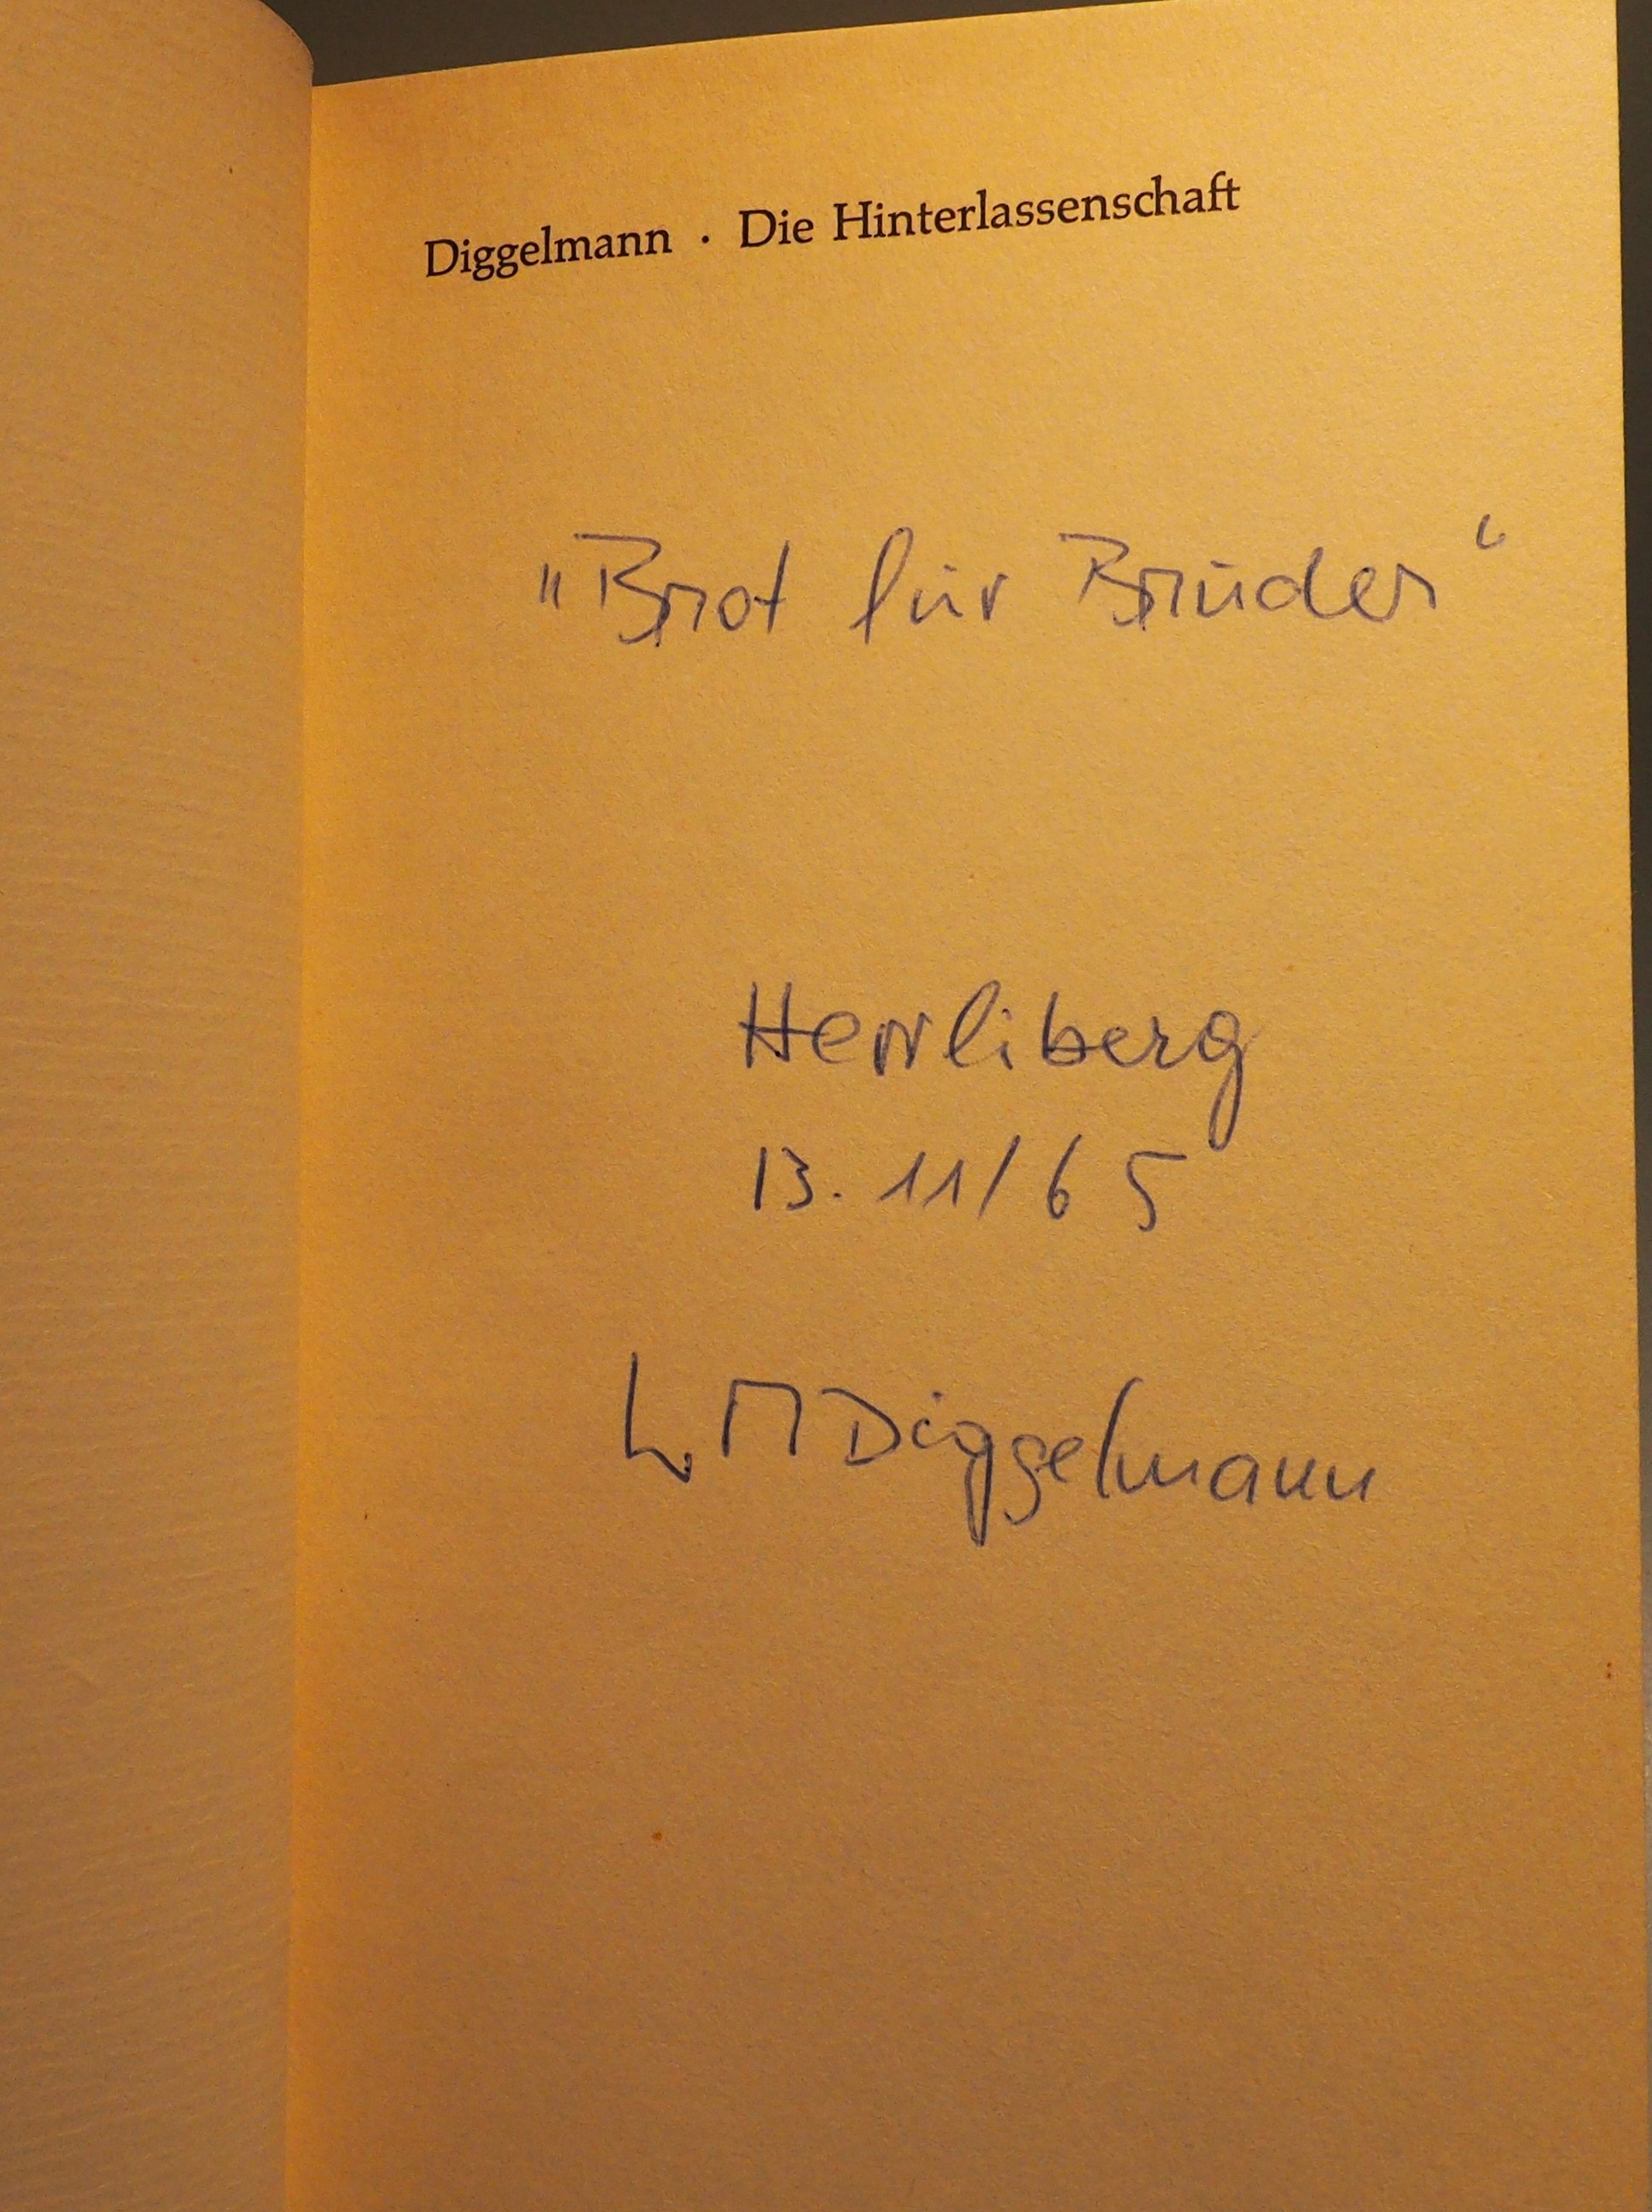 Diggelmann · Die Hinterlassenschaft
„Brot für Brüder“
Herrliberg
13. 11/65
W M Diggelmann